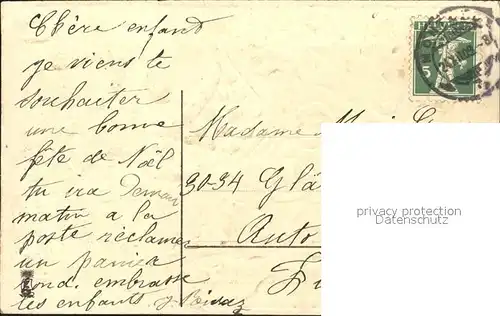 Chère enfant
je viens te
souhaiter
une bonne
fête de Noël
tu ira Demain
matin a la
poste réclamer
un panier
rond. embrasse
les enfants
Madame
30-34 Glâ
Auto
HELVETIA
5
privacy protection
Datenschutz